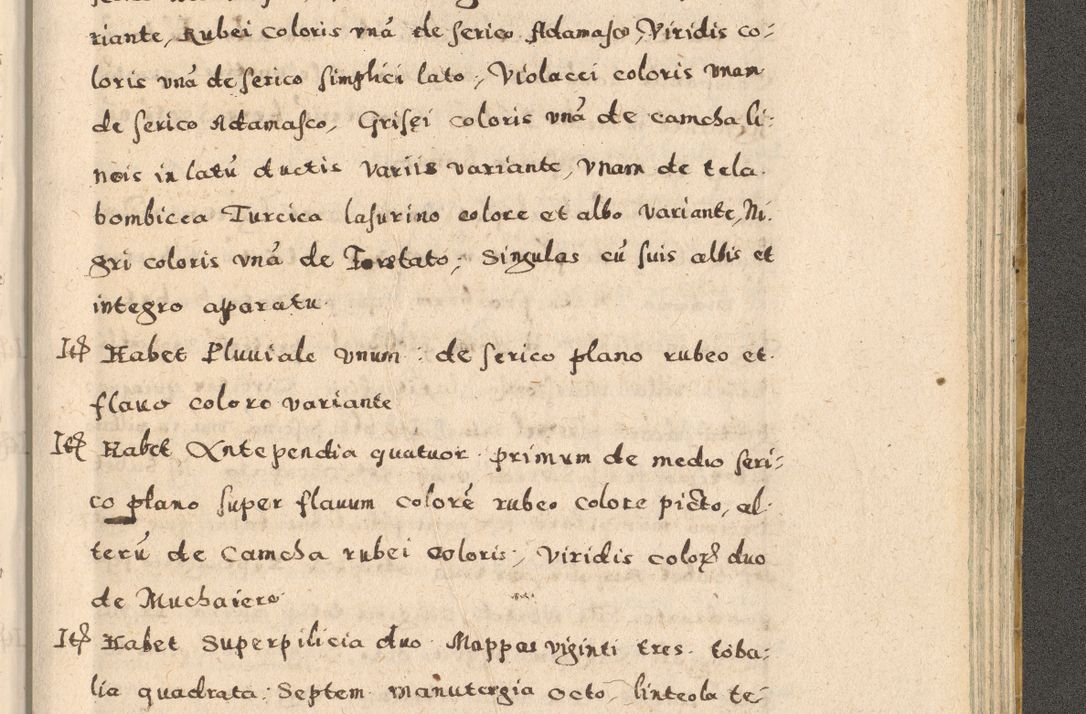 riante, Rubei coloris unã de serico Adamasco, Viridis co-
loris unã de serico simplici lato, Violacei coloris unam
de serico Adamasco, Grisęi coloris unã de camcha li-
neis in latũ ductis variis variante, unam de tela
bombicea Turcica lasurino colore et albo variante, Ni-
gri coloris unã de Forstato, Singulas cũ suis albis et
integro aparatu
Itẽ Habet Pluuiale unum de serico plano rubeo et
flauo colore variante
Itẽ Habet Antependia quatuor primum de medio seri-
co plano super flauum colorẽ rubeo colore picto, al-
terũ de Camcha rubei coloris, viridis colorꝭ duo
de Muchaiero
Itẽ Habet Superpilicia duo Mappas viginti tres toba-
lia quadrata Septem manutergia octo linteola te-